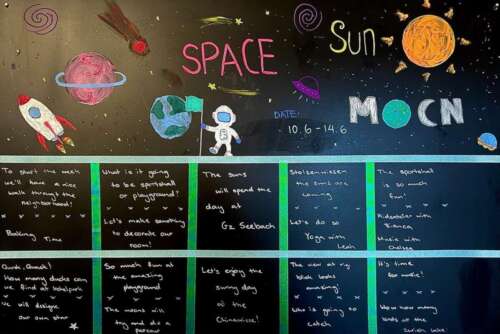 SPACE
Sun
MOON
DATE:
10.6 - 14.6
To start the week
we'll have a nice
walk through the
neighborhood!
Baking Time
What is it going
to be sportshall
or playground?
Let's make something
to decorate our
room!
The suns
will spend the
day at
GZ Seebach
the suns are
coming
Let's do so
Yoga with
Leah
The sportshall
is so much
fun!
with
Bianca
Music with
Chelsea
Quack, Quack!
How many ducks can
we find at
We will design
our own star
So much fun at
the amazing
playground
The moons will
try and do a
parcour
Let's enjoy the
sunny day
at the
Chinawiese!
The new at my
block looks
amazing!
Who is going to
catch
It's time
for music!
How many